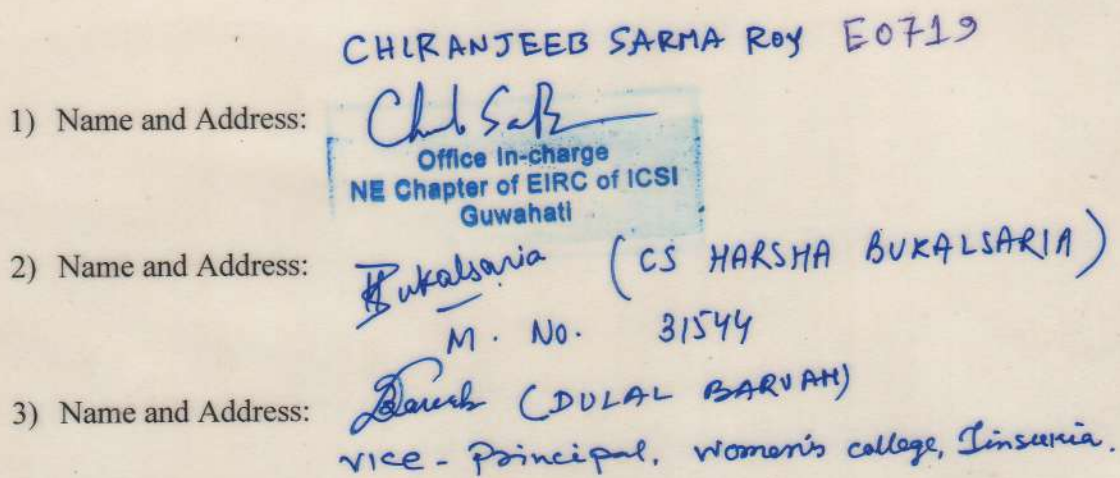 CHIRANJEEB SARMA ROY E0719
1) Name and Address:
Office In-charge
NE Chapter of EIRC of ICSI
Guwahati
2) Name and Address: Bukalsaria (CS HARSHA BUKALSARIA)
M. No. 31544
3) Name and Address: (DULAL BARUAH)
Vice-Principal, Women's college, Tinsukia.